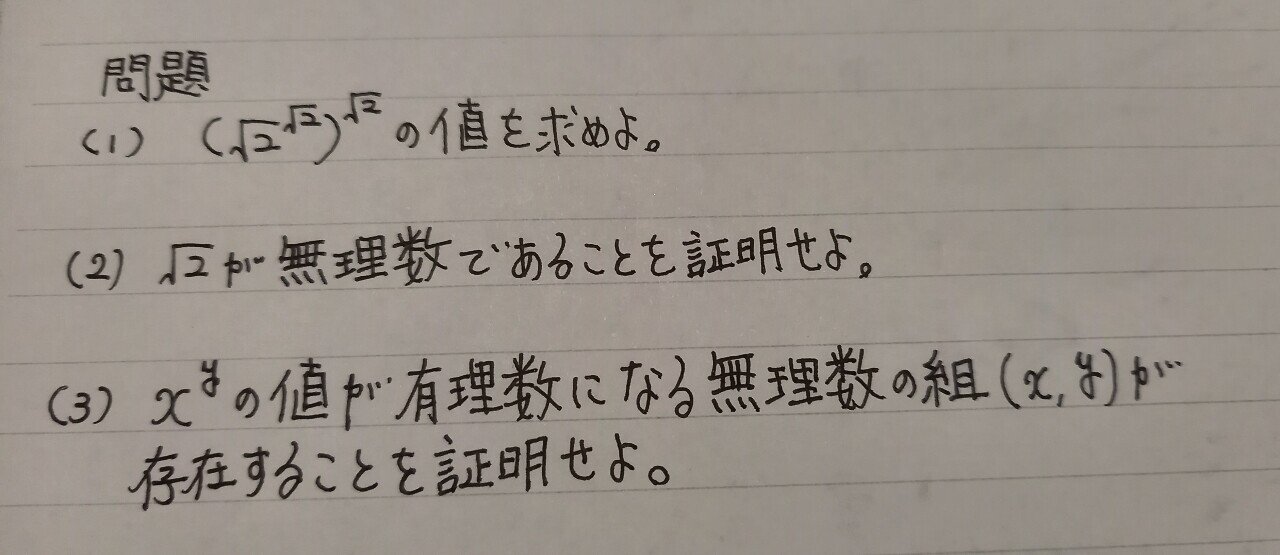 問題
(1) (√2^√2)^√2 の値を求めよ。
(2) √2が無理数であることを証明せよ。
(3) x^yの値が有理数になる無理数の組(x,y)が
存在することを証明せよ。